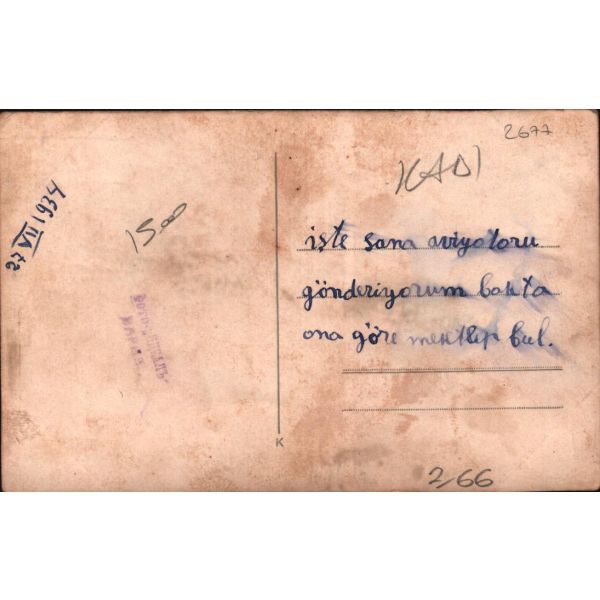 2677
KADI
27 VII 1934
1500
işte sana aviyatoru
gönderiyorum bakta
ona göre mektep bul.
K
266